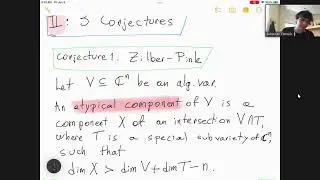 II: 3 Conjectures
Conjecture 1. Zilber-Pink
Let V ⊆ ℂⁿ be an alg. var.
An atypical component of V is a
component X of an intersection V∩T,
where T is a special subvariety of ℂⁿ,
such that
dim X > dim V + dim T - n.